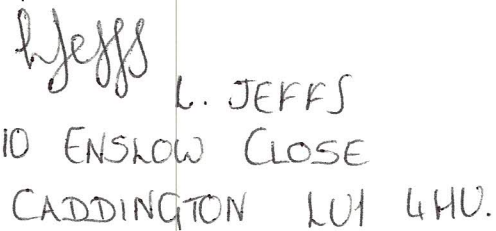 LJeffs
L. JEFFS
10 ENSLOW CLOSE
CADDINGTON LU1 4HU.